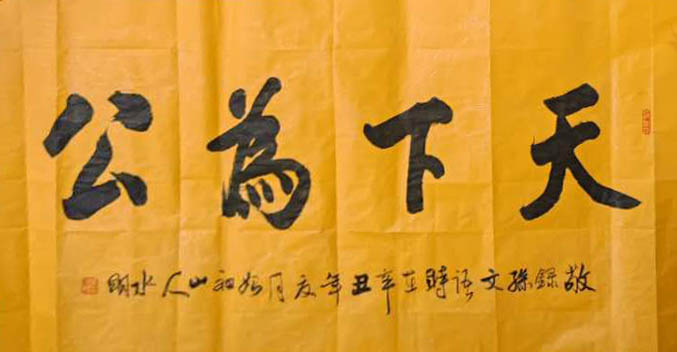 天下為公
敬錄孫文語時在辛丑年夏月山人水明